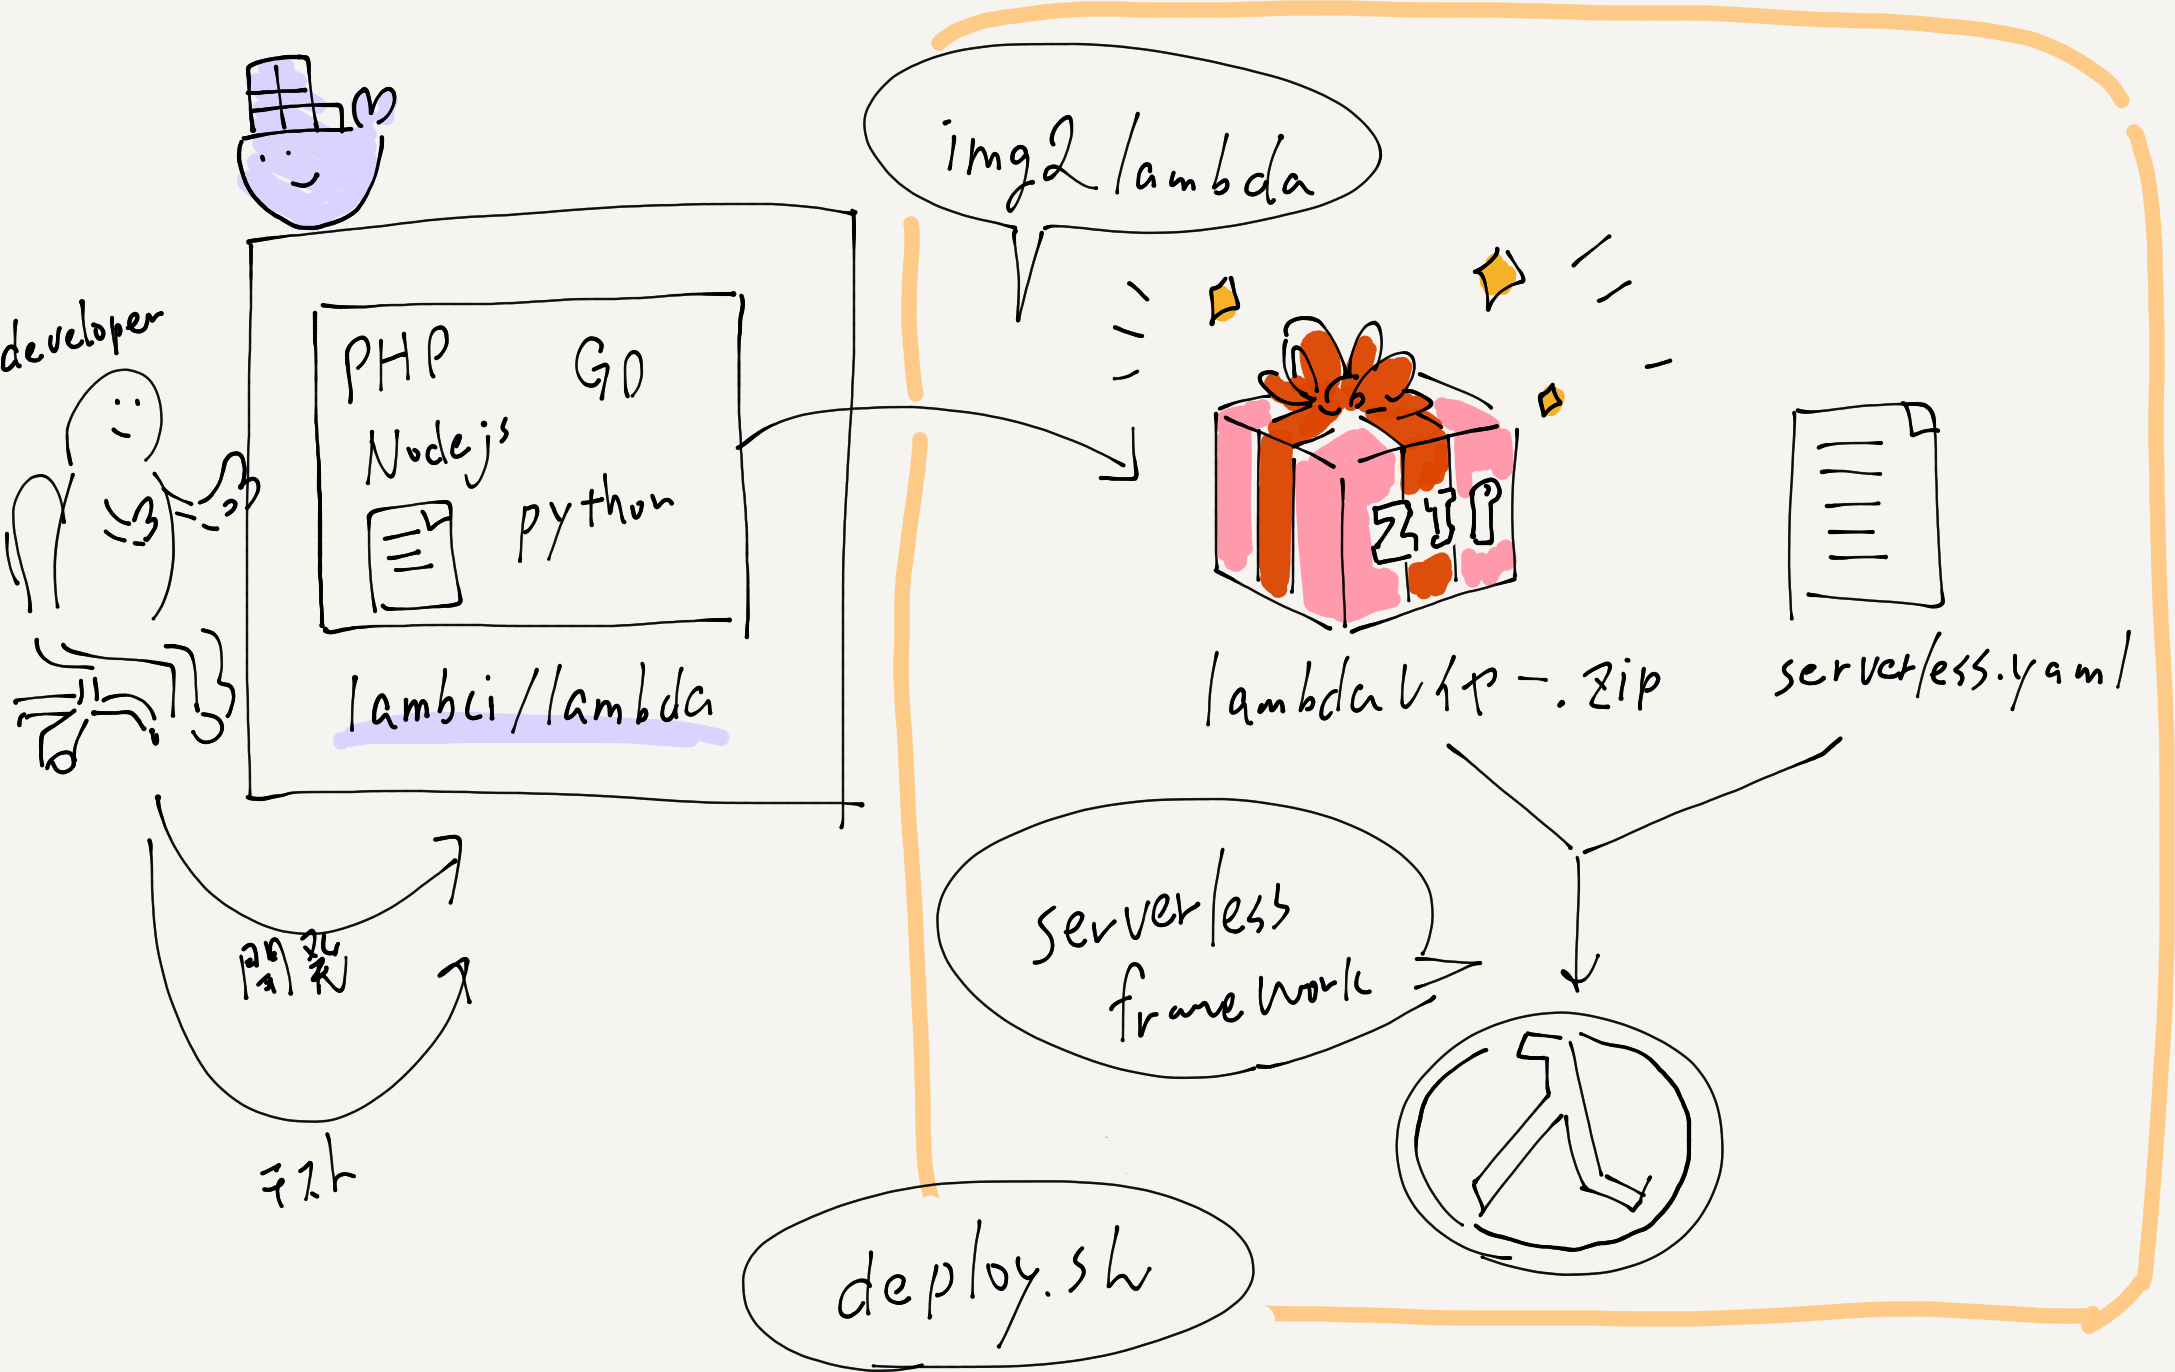 developer
PHP
Go
Nodejs
python
lambci/lambda
開発
テスト
img2lambda
ZIP
lambdaレイヤー.zip
serverless.yaml
serverless
framework
deploy.sh